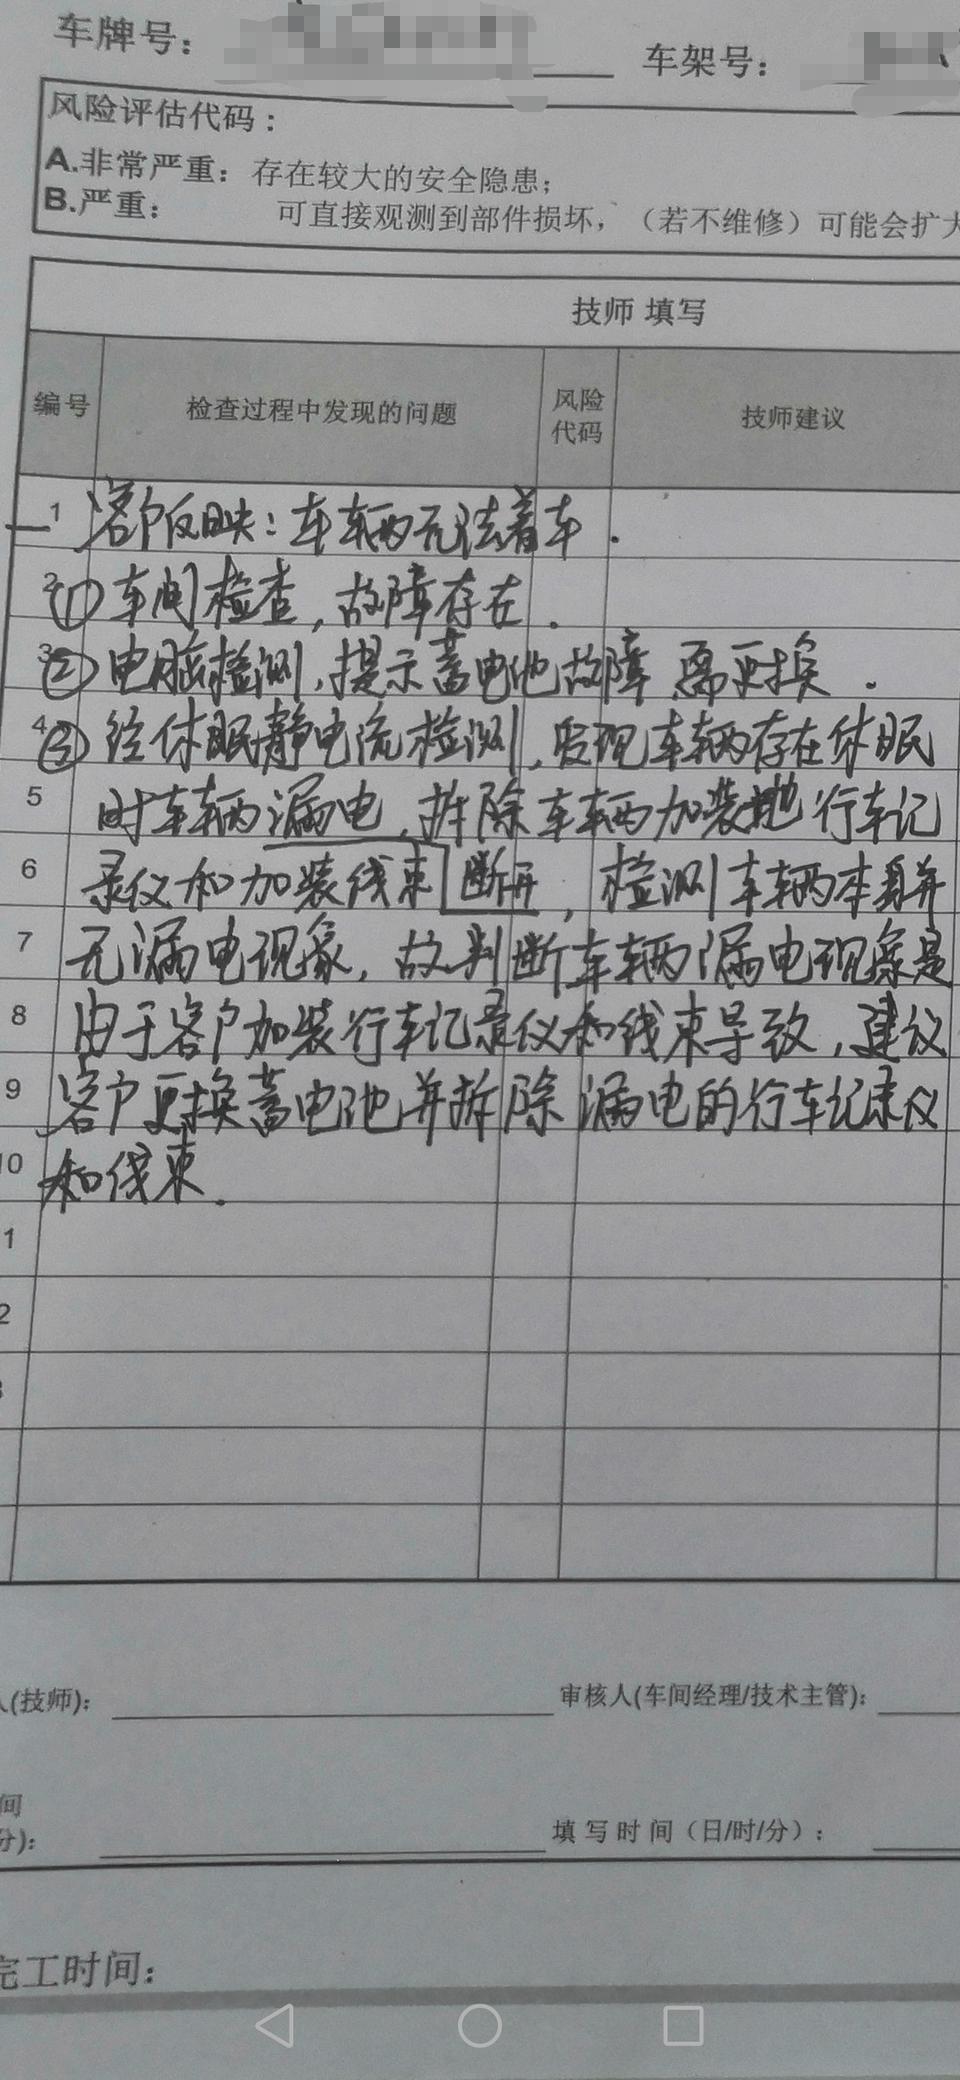 车牌号：
车架号：
风险评估代码：
A.非常严重：存在较大的安全隐患；
B.严重： 可直接观测到部件损坏，（若不维修）可能会扩大
技师 填写
编号 检查过程中发现的问题 风险代码 技师建议
1 客户反映：车辆无法着车．
2 ①车间检查，故障存在．
3 ②电脑检测，提示蓄电池故障，需更换．
4 ③经休眠静电流检测，发现车辆存在休眠
5 时车辆漏电，拆除车辆加装 行车记
6 录仪和加装线束断开，检测车辆本身并
7 无漏电现象，故判断车辆漏电现象是
8 由于客户加装行车记录仪和线束导致，建议
9 客户更换蓄电池并拆除漏电的行车记录仪
10 和线束．
1
2
人(技师)：
审核人(车间经理/技术主管)：
间
分)：
填 写 时 间（日/时/分）：
完工时间：